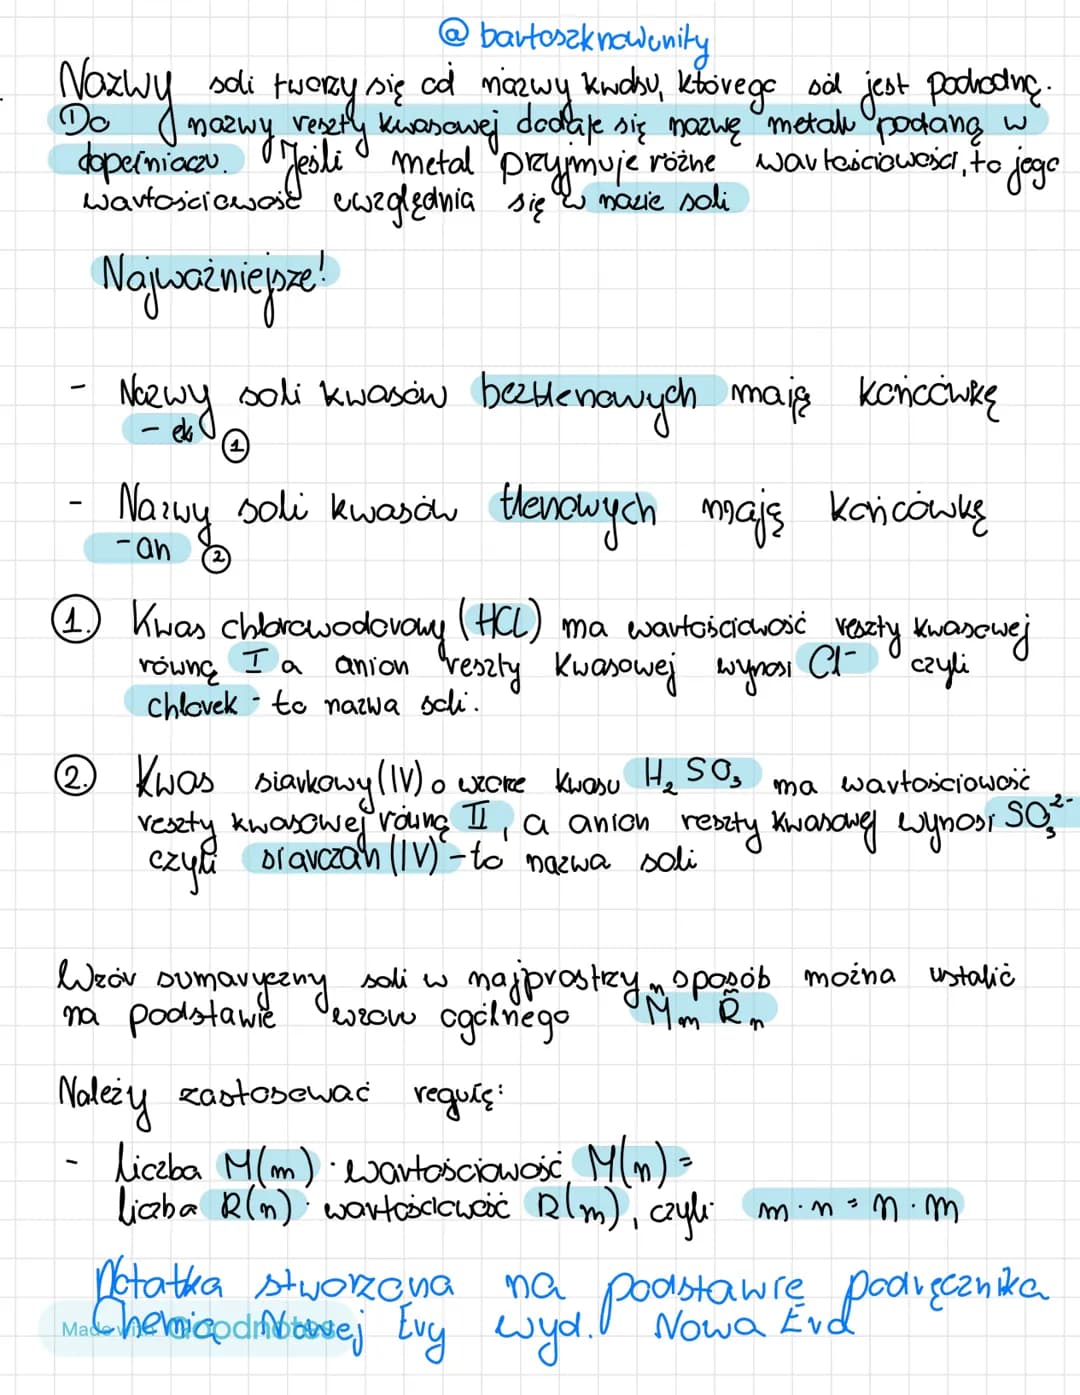 @ bartoszknowunity
Nazwy soli tworzy się od nazwy kwasu, którego sól jest pochodną.
Do nazwy reszty kwasowej dodaje się nazwę metalu podaną w
dopełniaczu. Jeśli metal przyjmuje różne wartościowości, to jego
wartościowość uwzględnia się w nazie soli
Najważniejsze!
- Nazwy soli kwasów beztlenowych mają końcówkę
- ek ①
- Nazwy soli kwasów tlenowych mają końcówkę
-an ②
①. Kwas chlorowodorowy (HCL) ma wartościowość reszty kwasowej
równą I a anion reszty kwasowej wynosi Cl⁻ czyli
chlorek - to nazwa soli.
②. Kwas siarkowy(IV) o wzorze kwasu H₂SO₃ ma wartościowość
reszty kwasowej równą II, a anion reszty kwasowej wynosi SO₃²⁻
czyli siarczan (IV) -to nazwa soli
Wzór sumaryczny soli w najprostrzy sposób można ustalić
na podstawie wzoru ogólnego Mⁿₘ R̃ₙ
Należy zastosować regułę:
- Liczba M(m) · wartościowość M(n) =
liczba R(n) · wartościowość R(m), czyli m·n = n·m
Notatka stworzona na podstawie podręcznika
Chemia Nowej Ery wyd. Nowa Era
Made with Goodnotes